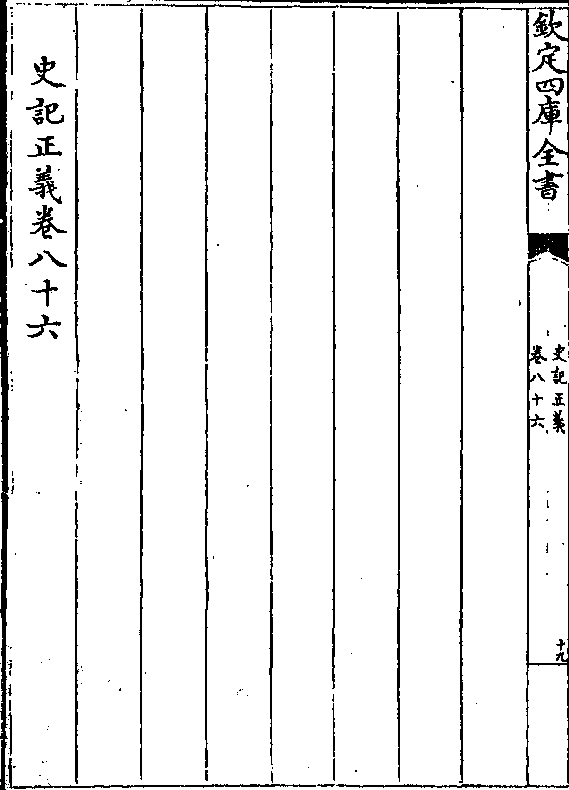 欽定四庫全書
史記正義
卷八十六
十九
史記正義卷八十六